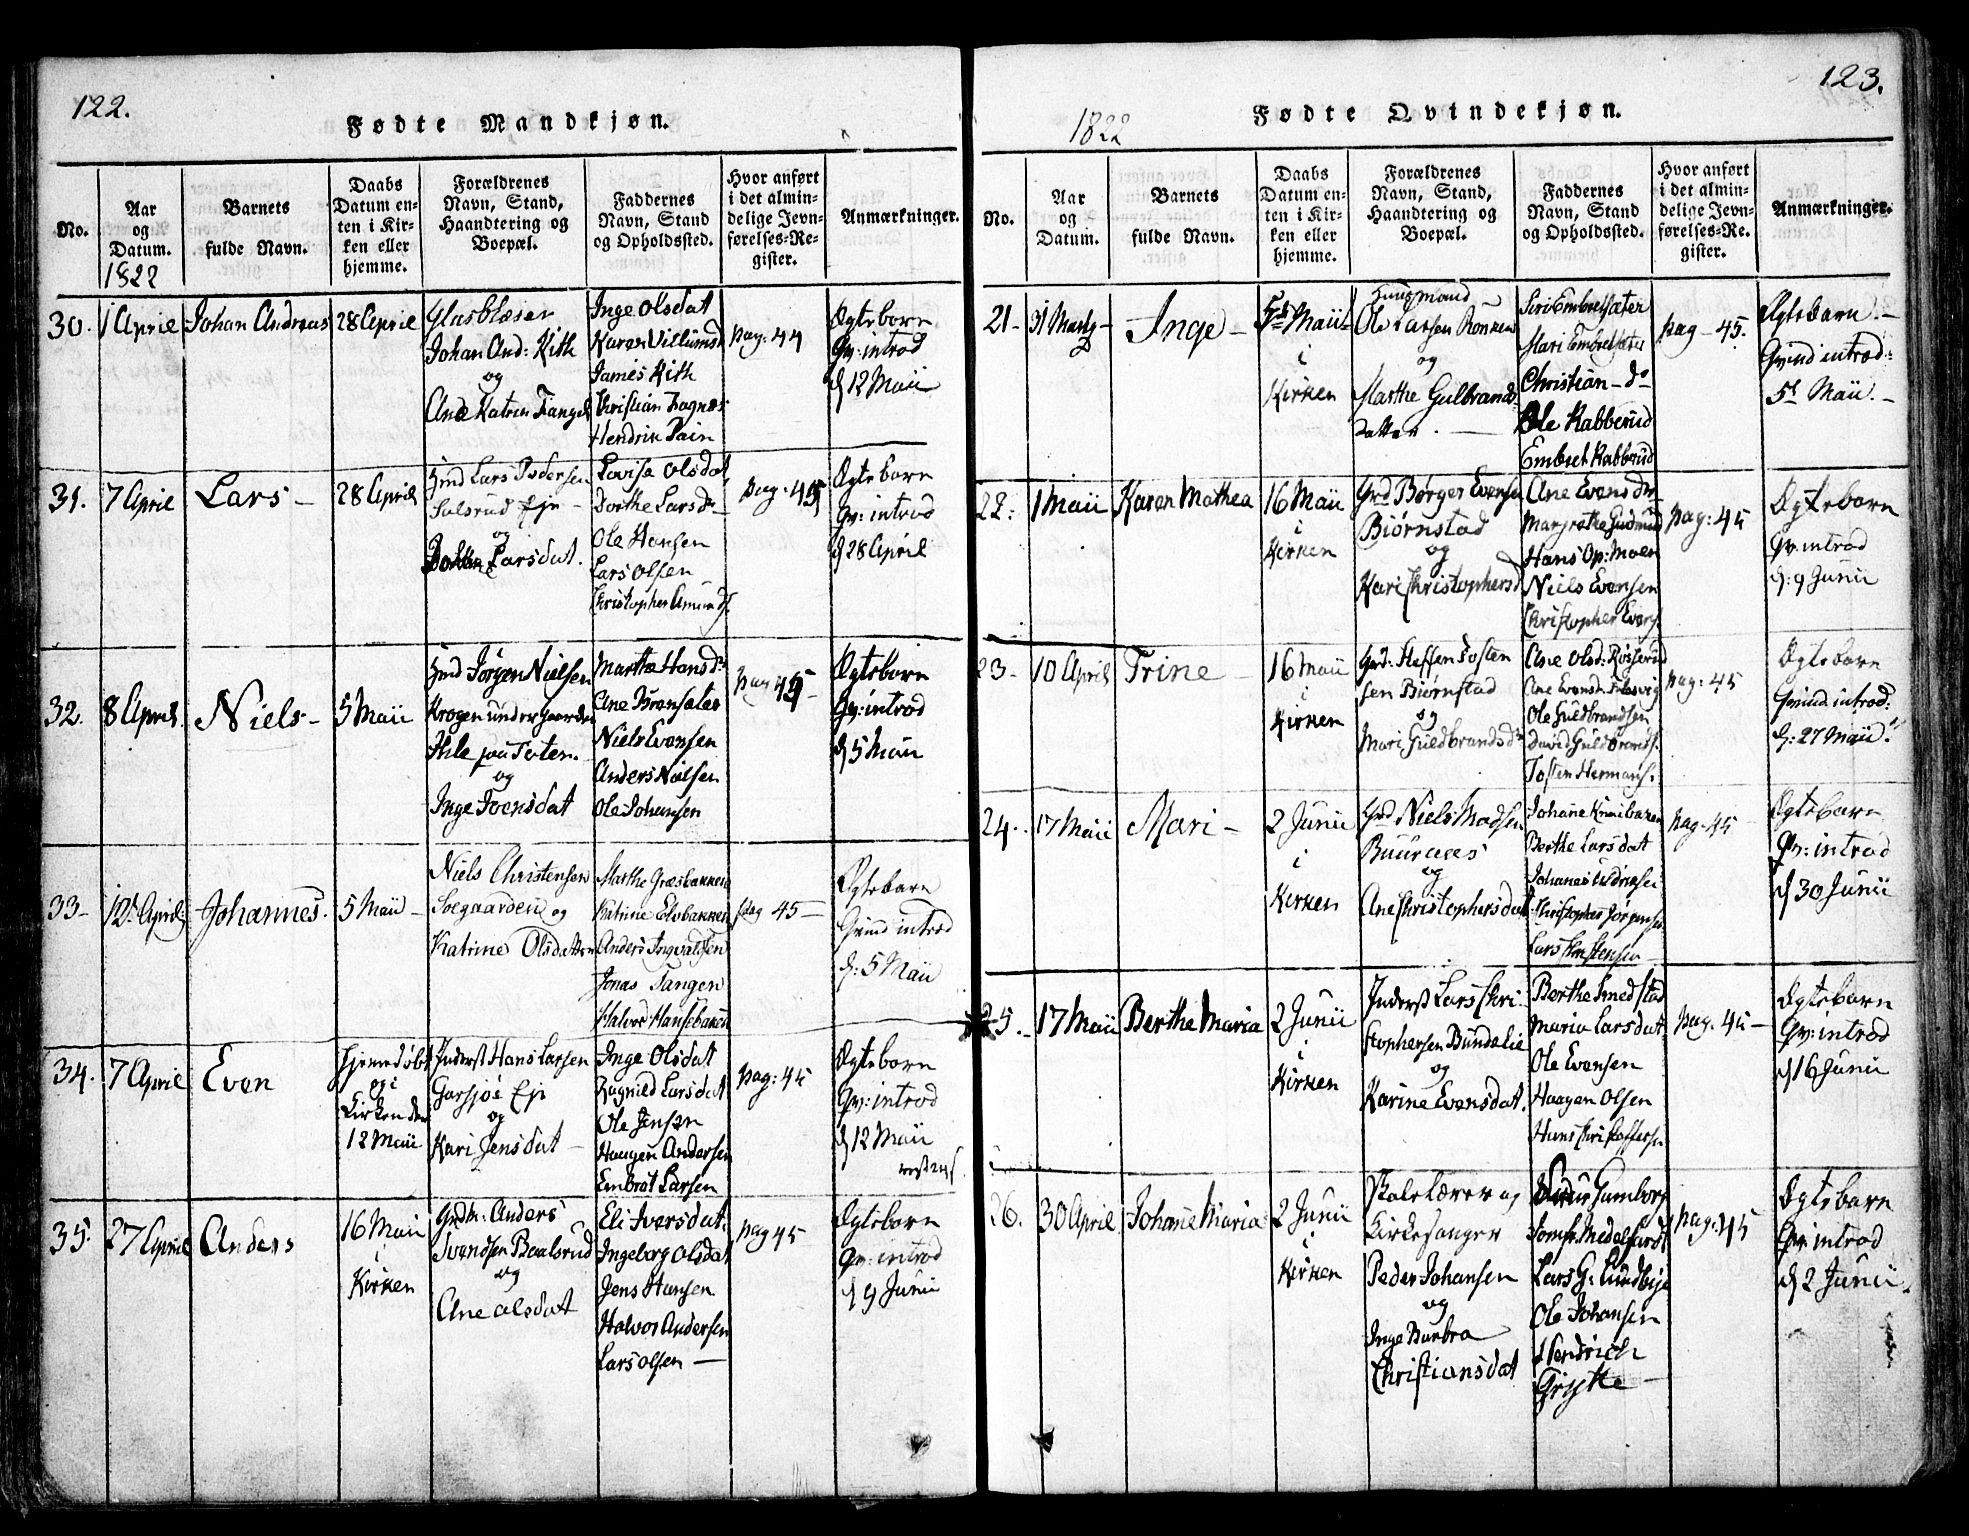 122.
Fødte Mandkjøn.
No.
Aar
og
Datum.
1822
Barnets
fulde Navn.
Daabs
Datum en-
ten i Kir-
ken eller
hjemme.
Forældrenes
Navn, Stand,
Haandtering og
Boepæl.
Faddernes
Navn, Stand
og Opholdssted.
Hvor anført
i det almin-
delige Jevn-
førelses-Re-
gister.
Anmærkninger.
30.
1 April
Johan Andreas
28 April
Glasblæser
Johan And: Kith
og
Ane Katrin Tangen
Inge Olsdat
Karen Villumsd
James Kith
Christian Fagnæs
Hendrik Pain
pag: 44
Ægtebarn
Qv: introd
d 12 Maii
31.
7 April
Lars
28 April
Hmd Lars Pedersen
Salsrud Eje
og
Dorthe Larsdat.
Lovise Olsdat,
Dorthe Larsd
Ole Hansen
Lars Olsen
Christopher Amunds.
pag: 45
Ægtebarn
Qv: introd
d 28 April
32.
8 April.
Niels
5 Maii
Hmd Jørgen Nielsen
Krogen under Gaarden
Ihle paa Toten.
og
Inge Ivensdat
Marthe Hansdr
Ane Brensæter
Niels Evensen
Anders Nielsen
Ole Johansen
pag 45
Ægtebarn
Qv: introd
d 5 Maii
33
12t April
Johannes.
5 Maii
Niels Christensen
Soegaarden og
Katrine Olsdatter
Marthe Græsbakken
Katrine Elvbakken
Anders Ingvaldsen
Jonas Tangen
Halvor Hansebakken
pag 45
Ægtebarn
Qvind introd
d: 5 Maii
34.
7 April
Even
Hjemmedøbt
og i
Kirken den
12 Maii
Inderst Hans Larsen
Garsjøe Eje
og
Kari Jensdat
Inge Olsdat
Ragnild Larsdat
Ole Jensen
Haagen Andersen
Embret Larsen
pag: 45
Ægtebarn
Qv: introd
d 12 Maii
35.
27 April
Anders
16 Maii
i
Kirken
Grdm: Anders
Svendsen Baalsrud
og
Ane Olsdat
Eli Iversdat.
Ingeborg Olsdat
Jens Hansen
Halvor Andersen
Lars Olsen
pag 45
Ægtebarn
Qv: introd
d 9 Junii
123.
Fødte Qvindekjøn.
1822
No.
Aar
og
Datum.
Barnets
fulde Navn.
Daabs
Datum en-
ten i Kir-
ken eller
hjemme.
Forældrenes
Navn, Stand,
Haandtering og
Boepæl.
Faddernes
Navn, Stand
og Opholdssted.
Hvor anført
i det almin-
delige Jevn-
førelses-Re-
gister.
Anmærkninger.
21
31 Marts
Inge
5te Maii
i
Kirken
Huusmand
Ole Larsen Ronken
og
Marthe Gulbrands
datter.
Siri Embretsæter
Mari Embretsæter
Christian do
Ole Rabberud
Embret Rabberud
pag 45.
Ægtebarn.
Qvind introd:
5t Maii.
22.
1 Maii
Karen Mathea
16 Maii
i
Kirken
Grd Børger Evensen
Biørnstad
og
Kari Christophersd
Ane Evensdr
Margrethe Gudmund
Hans Op: Moen
Niels Evensen
Christopher Evers.
pag: 45
Ægtebarn
Qv: introd
d: 9 Junii
23
10 April
Trine
16 Maii
i
Kirken
Grd: Steffen Tosten
sen Biørnstad
og
Mari Guldbrandsdr
Ane Olsd: Rosserud
Ane Evensdr
Ole Guldbrandsen
David Guldbrands.
Tosten Hermans.
pag: 45
Ægtebarn
Qvind introd:
d: 27 Maii.
24.
17 Maii
Mari
2 Junii
i
Kirken
Grd Niels Madsen
Buuraas
og
Ane Christophersdat
Johane Knaibaken
Berthe Larsdat
Christopher Jørgensen
Lars Christensen
pag. 45
Ægtebarn
Qv: introd
d 30 Junii
25.
17 Maii
Berthe Maria
2 Junii
i
Kirken
Inderst Lars Chri
stophersen Bundalie
og
Karine Evensdat.
Berthe Smedstad
Maria Larsdat
Ole Evensen
Haagen Olsen
Hans Christoffersen
pag. 45
Ægtebarn
Qv: introd
d 16 Junii
26.
30 April
Johane Maria
2 Junii
i
Kirken
Skolelærer og
Kirkesanger
Peder Johansen
og
Inge Barbra
Christiansdat
Gumborg
Lars G: Lundbye
Ole Johansen
Hendrich
Grytte
pag: 45
Ægtebarn
Qv: introd
d 2 Junii.